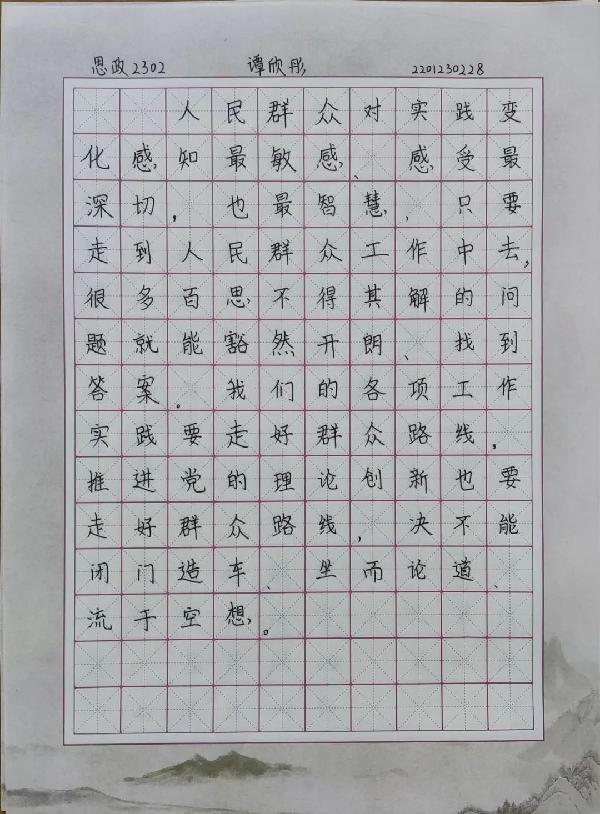 思政2302 谭欣彤 2201230228
人民群众对实践变
化感知最敏感、感受最
深切，也最智慧，只要
走到人民群众工作中去，
很多百思不得其解的问
题就能豁然开朗、找到
答案。我们的各项工作
实践要走好群众路线，
推进党的理论创新也要
走好群众路线，决不能
闭门造车、坐而论道、
流于空想。